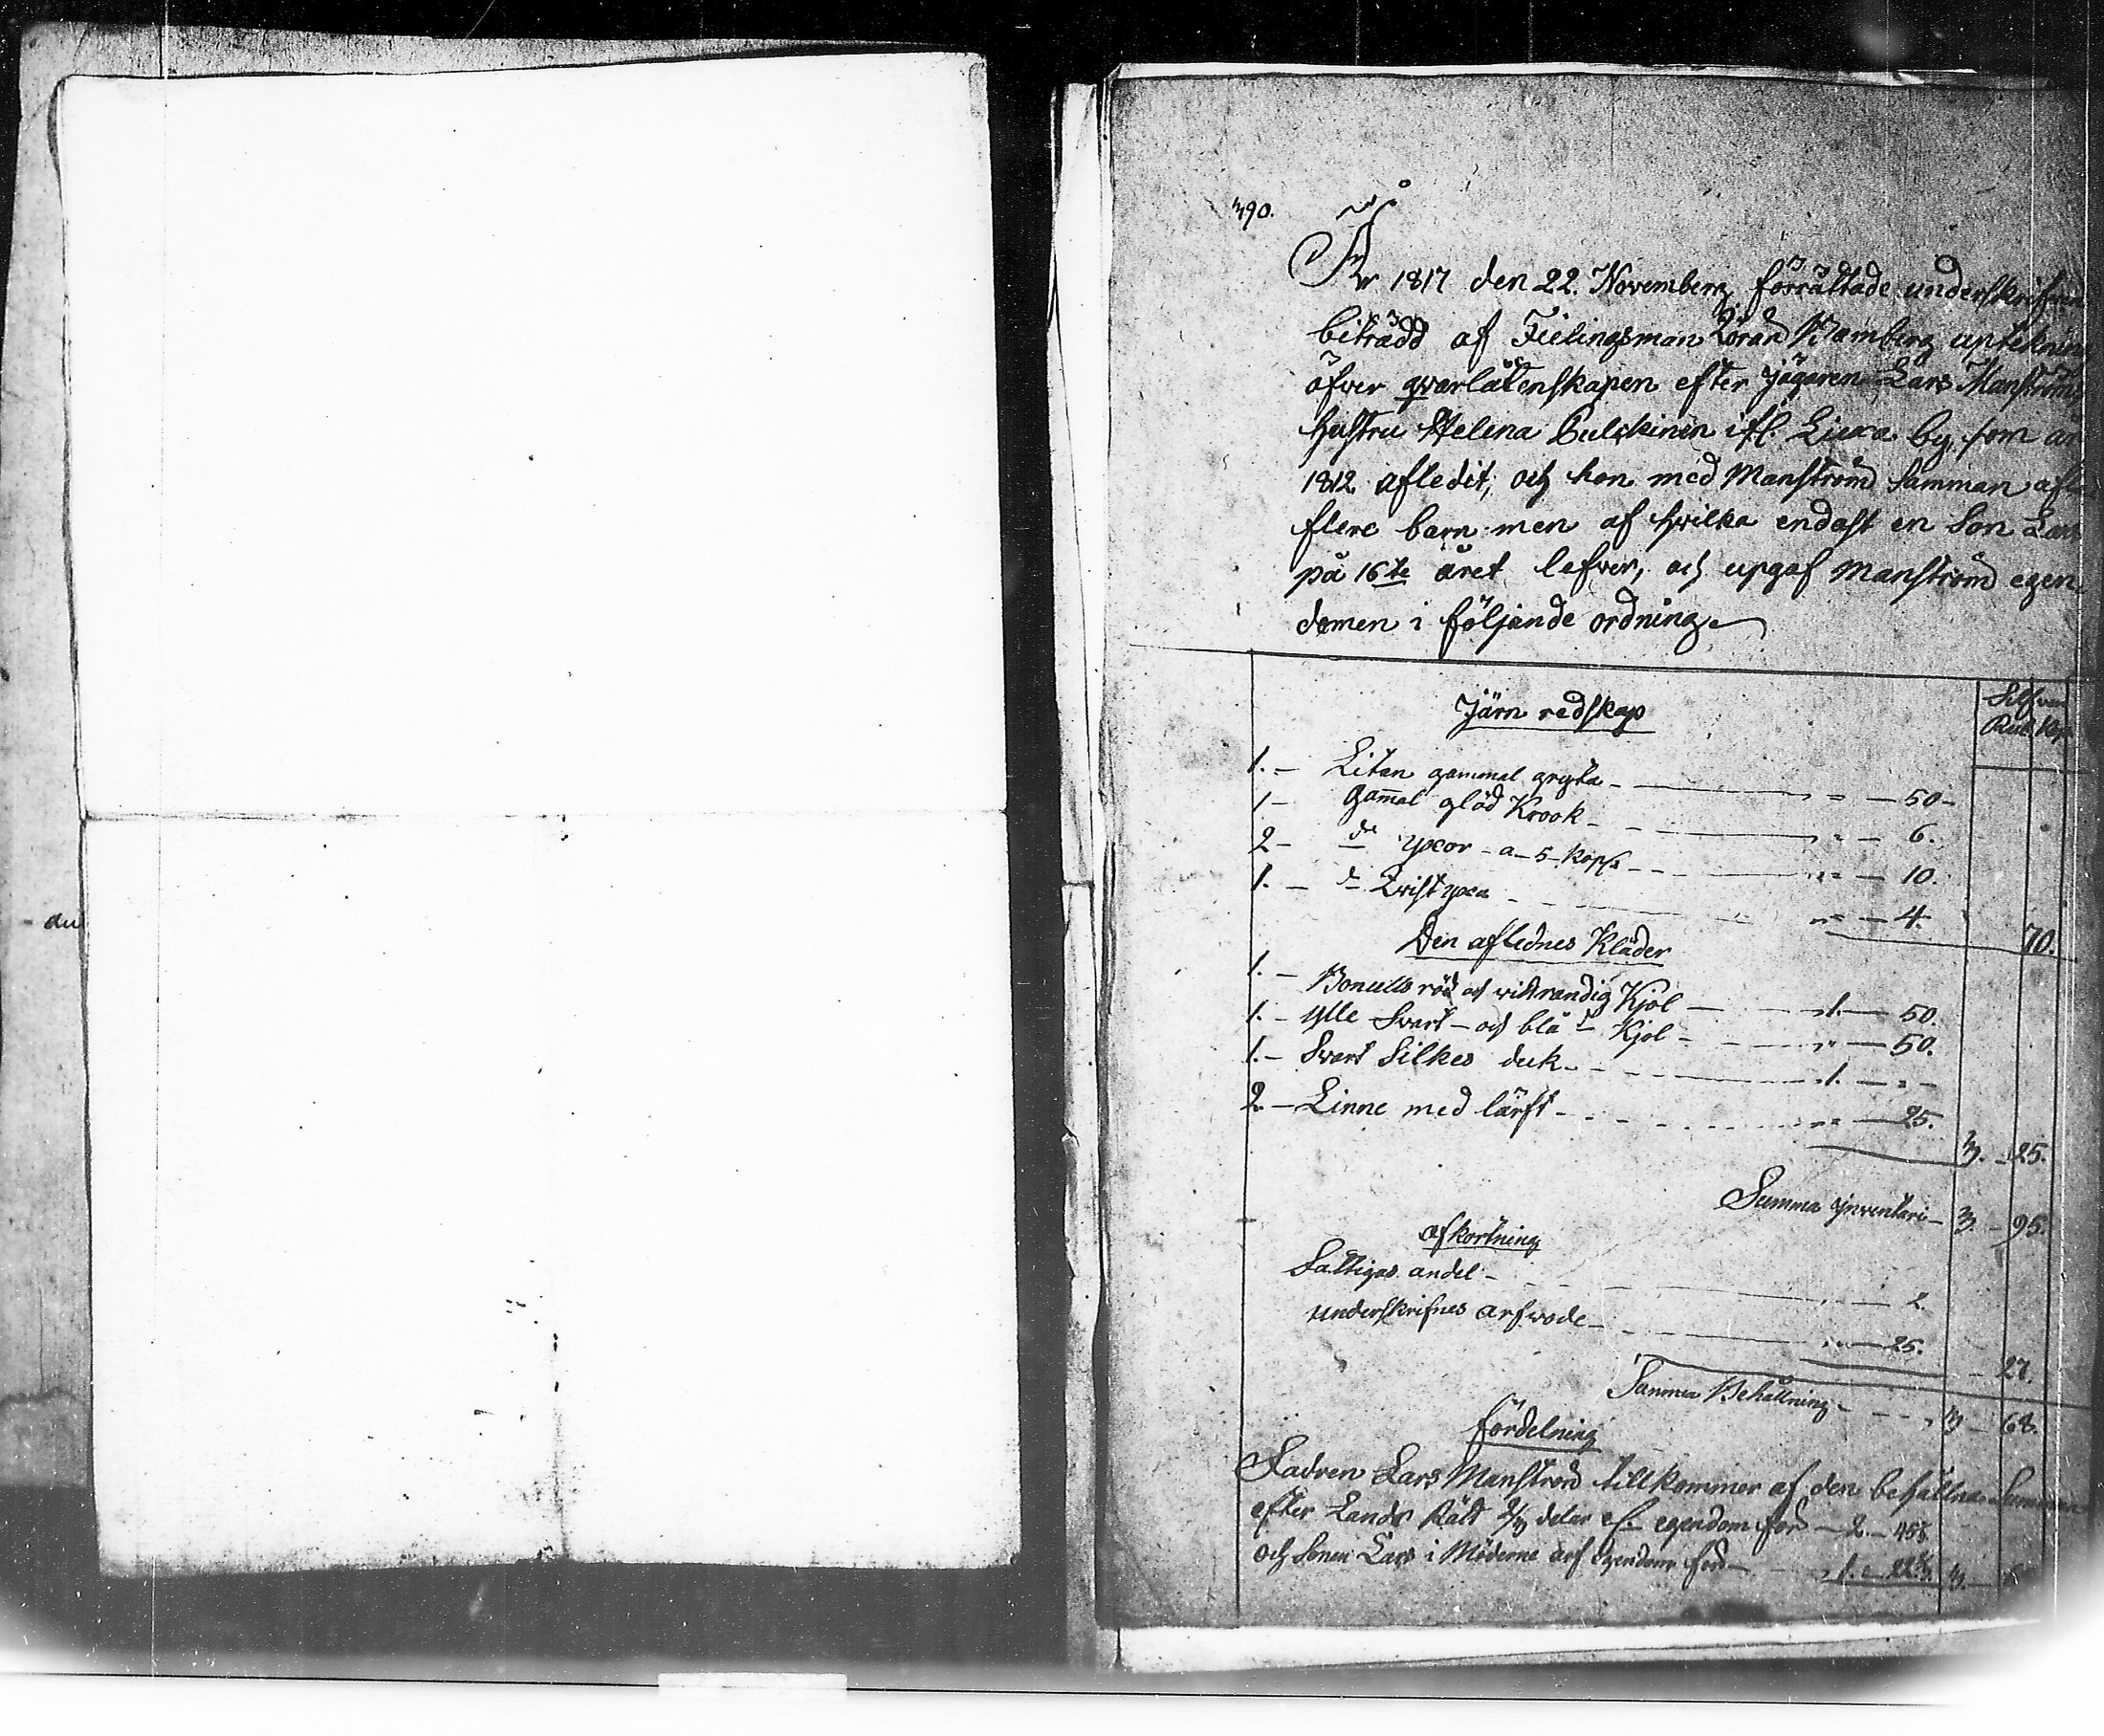 du
490.
År 1817 den 22. Novemberg. förrättade underskrifn
biträdd af Fielingsman Göran Bamberg uptekni
öfver qvarlåtenskapen efter Jägaren Lars Manströms
hustru Helena Pulckinen ifl. Liexa by, som år
1812 afledit, och hon med Manström Samman afl
flere barn men af hvilka endast en Son Lars
på 16te året lefver, och upgaf Manström egen
domen i följande ordning.
Järn redskap
Silfver
Rub. Kop.
1. — Liten gammal gryta - „ — 50 -
1 — Gam̄al glöd Krook - „ — 6.
2 — do yxor - a - 5 - Kop/r — „ — 10.
1. — do Qvist yxa - „ — 4.
70.
Den aflednes Kläder
1. — Bomulls röd och vidtrandig Kjol — 1. — 50.
1. — Ylle Svart - och blå do Kjol - „ — 50.
1. — Svart Silkes duk - 1. — „ -
2. — Linne med lärft - „ — 25.
3. - 25.
Summa ynventari - 3 - 95.
afkortning
Fattigas andel - „ — 2.
underskrifnes arfwode - „ — 25.
- 27.
Summa Behållning - 3 - 68.
fördelning
Fadren Lars Manströd tillkommer af den behållna Summan
efter Lands Rätt 2/3 delar el. egendom för - 2. - 45 1/3
och Sonen Lars i Möderne arf egendom för - 1. - 22 2/3 3. -